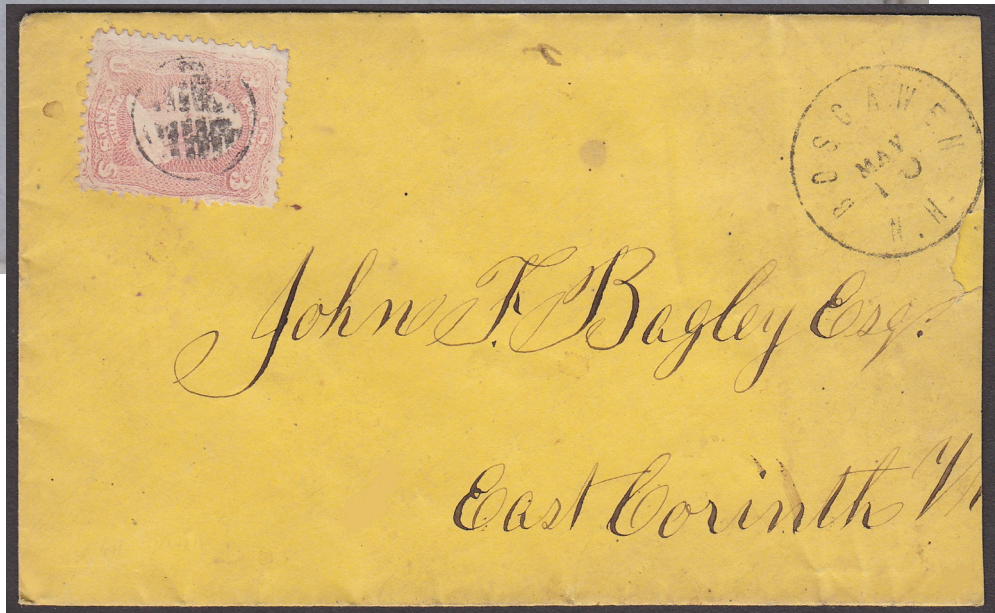 BOSCAWEN N.H.
MAY
10
John F. Bagley Esqr.
East Corinth Vt